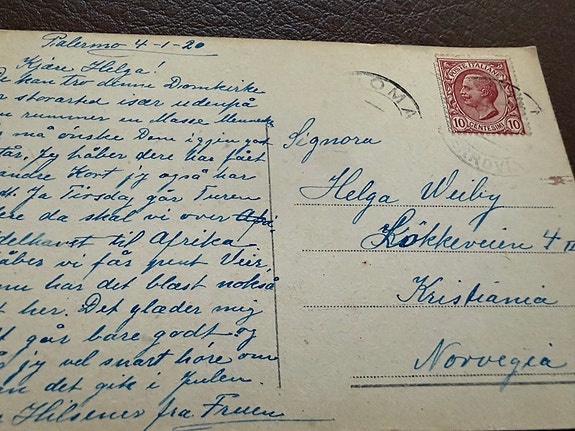 Palermo 4-1-20
Kjære Helga!
kan tro denne Domkirke
storartet især udenpå
rummer en Masse Menneske
må ønske Dem igjen godt
Jeg håber dere har fået
andre Kort jeg også har
Ja Tirsdag går Turen
da skal vi over
delhavet til Afrika.
håber vi får pent Veir,
nu har det blæst nokså
her. Det glæder mig
går bare godt og
jeg vel snart høre om
det gik i Julen.
Hilsener fra Fruen
Signora
Helga Weiby
Lökkeveien 4 III
Kristiania
Norvegia
ROMA
POSTE ITALIANE
10 CENTESIMI 10